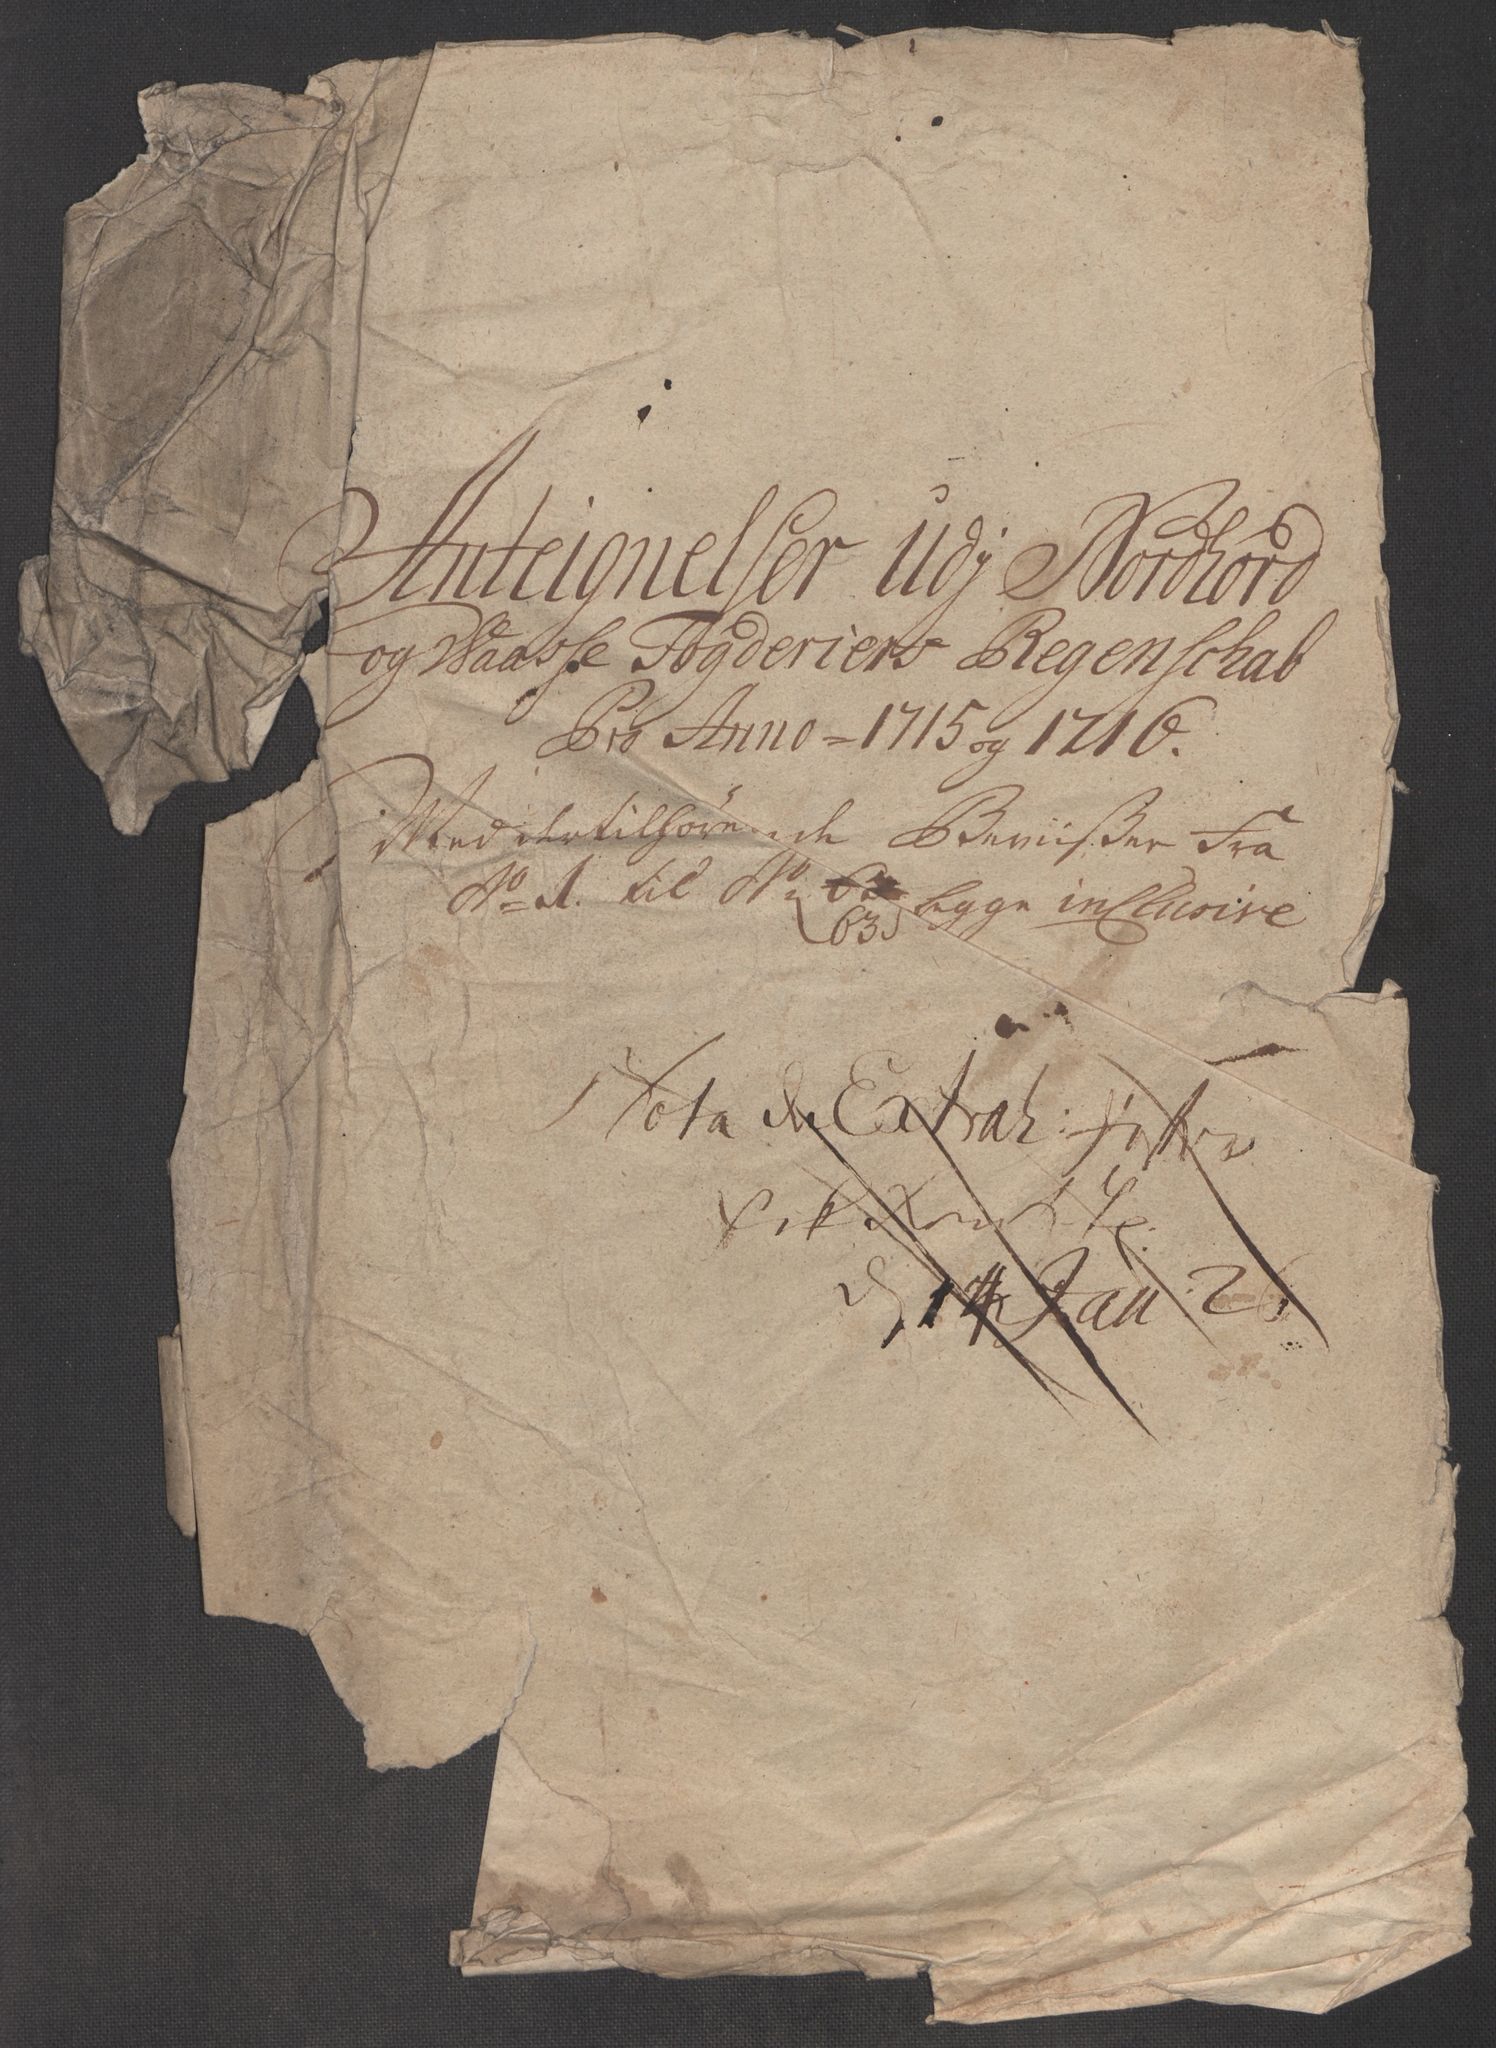 Anteignelser Udj Nordhord
og Waasse Fogderiers Regenschab
Pro Anno = 1715 og 1716.
Med dertilhörende Beviißer Fra
No 1. til No 63 begge inclusive
Nota de Extrah:
d 14 Jan: 26